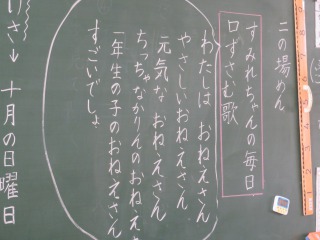 二の場めん
すみれちゃんの毎日
口ずさむ歌
わたしは おねえさん
やさしいおねえさん
元気な おねえさん
ちっちゃなかりんのおねえさ
一年生の子のおねえさん
すごいでしょ
さ↓ 十月の日曜日